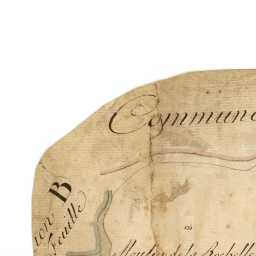 Commun
ion B
Feuille
Moulin de la Rochelle